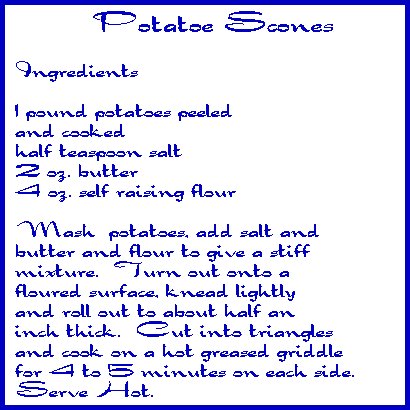 Potatoe Scones
Ingredients
1 pound potatoes peeled
and cooked
half teaspoon salt
2 oz. butter
4 oz. self raising flour
Mash potatoes, add salt and
butter and flour to give a stiff
mixture. Turn out onto a
floured surface, knead lightly
and roll out to about half an
inch thick. Cut into triangles
and cook on a hot greased griddle
for 4 to 5 minutes on each side.
Serve Hot.